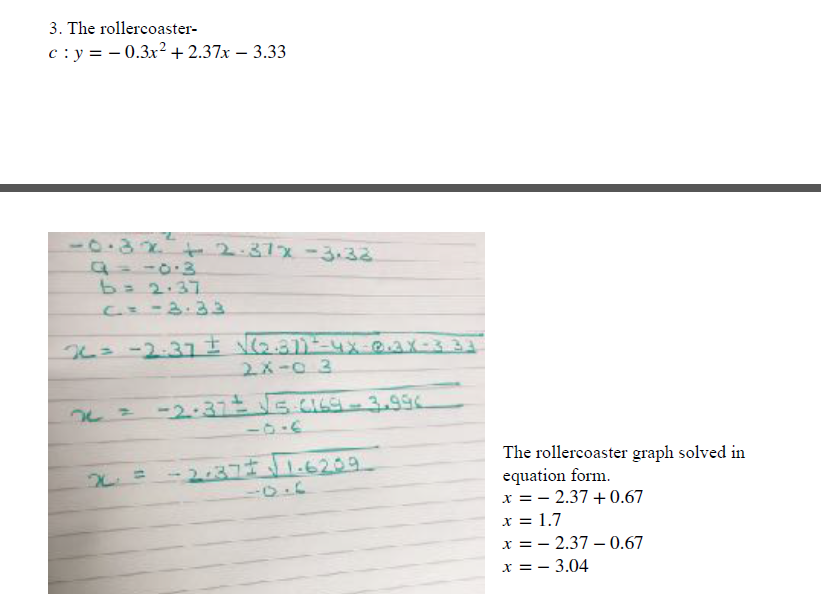 3. The rollercoaster-
c : y = − 0.3x² + 2.37x − 3.33
-0.3x² + 2.37x - 3.33
a = -0.3
b = 2.37
c = -3.33
x = -2.37 ± √(2.37)²-4x-0.3x-3.33
2x-0.3
x = -2.37 ± √5.6169 - 3.996
-0.6
x = -2.37 ± √1.6209
-0.6
The rollercoaster graph solved in
equation form.
x = − 2.37 + 0.67
x = 1.7
x = − 2.37 − 0.67
x = − 3.04